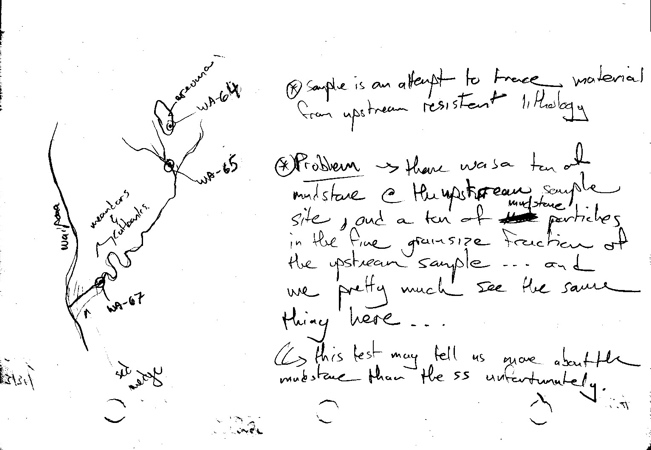 WA-64
WA-65
Waipaoa
meanders
&
cutbanks
WA-67
sed
wedge
* Sample is an attempt to trace material
from upstream resistent lithology
* Problem → there was a ton of
mudstone @ the upstream sample
site, and a ton of mudstone particles
in the fine grainsize fraction of
the upstream sample ... and
we pretty much see the same
thing here ...
↳ this test may tell us more about the
mudstone than the ss unfortunately.